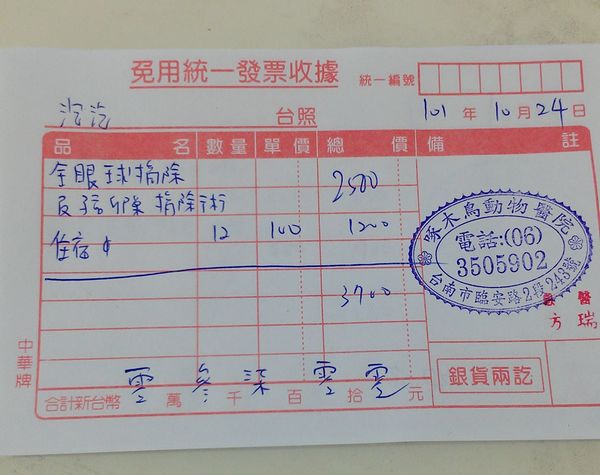 免用統一發票收據
統一編號
台照
101年10月24日
品名 數量 單價 總價 備註
全眼球摘除 2500
及 摘除術
住宿 12 100 1200
3700
啄木鳥動物醫院
電話:(06)
3505902
台南市臨安路2段245號
醫
方瑞
中華牌
合計新台幣 零萬參千柒百零拾零元
銀貨兩訖